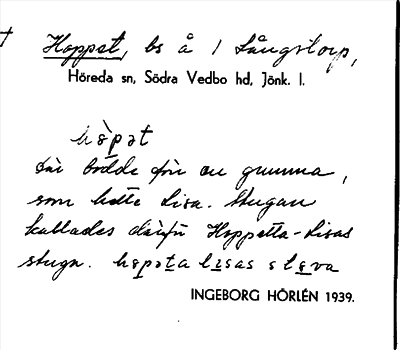 Hoppet, bs å / Långstorp,
Höreda sn, Södra Vedbo hd, Jönk. l.
hòpət
där bodde förr en gumma,
som hette Lisa. Stugan
kallades därför Hoppetta-Lisas
stuga. hopəta lisas
INGEBORG HÖRLÉN 1939.